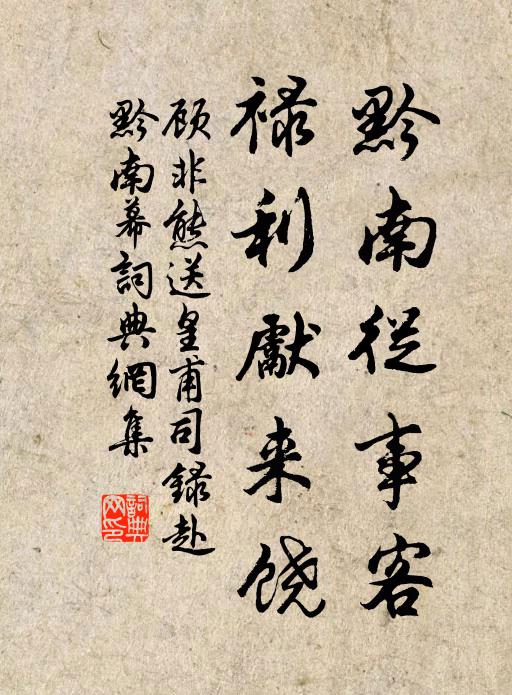 黔南從事客
禄利獻来饶
顾非熊送皇甫司録赴
黔南幕詞典網集
詞典网印